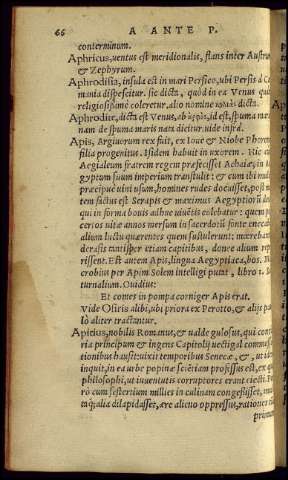 66 A ANTE P.
conterminum.
Aphricus, uentus est meridionalis, flans inter Austrum
& Zephyrum.
Aphrodisia, insula est in mari Persico, ubi Persis à Ca
mania dispescitur. sic dicta, quòd in ea Venus qua
religiosissimè coleretur, alio nomine dicta.
Aphrodite, dicta est Venus, ab ἀφρὸς, id est, spuma
nam de spuma maris nata dicitur. uide infrà.
Apis, Argiuorum rex fuit, ex Ioue & Niobe Phoron
filia progenitus. Isidem habuit in uxorem. Hic
Aegialeum fratrem regem præfecisset Achaiæ, in
gyptum suum imperium transtulit: & cum ibi mu
præcipuè uini usum, homines rudes docuisset, post
tem factus est Serapis & maximus Aegyptiorū de
qui in forma bouis adhuc uiuētis colebatur: quem p
cerios uitæ annos mersum in sacerdotū fonte eneca
alium luctu quærentes quem sustulerunt: mœrebant
derasis tantisper etiam capitibus, donec alium rep
rissent. Est autem Apis, lingua Aegyptiaca, bos.
crobius per Apim Solem intelligi putat, libro 1.
turnalium. Ouidius:
Et comes in pompa corniger Apis erat.
Vide Osiris alibi, ubi priora ex Perotto, & alijs
lò aliter tractantur.
Apitius, nobilis Romanus, & ualde gulosus, qui con
ria principum & ingens Capitolij uectigal commessa
tionibus hausit: uixit temporibus Senecæ, &, ut
inquit, in ea urbe popinæ sciētiam professus est, ex
philosophi, ut iuuentutis corruptores erant eiecti.
rò cum sestertium millies in culinam congessisset,
dilapidasset, ære alieno oppressus, rationes
primum